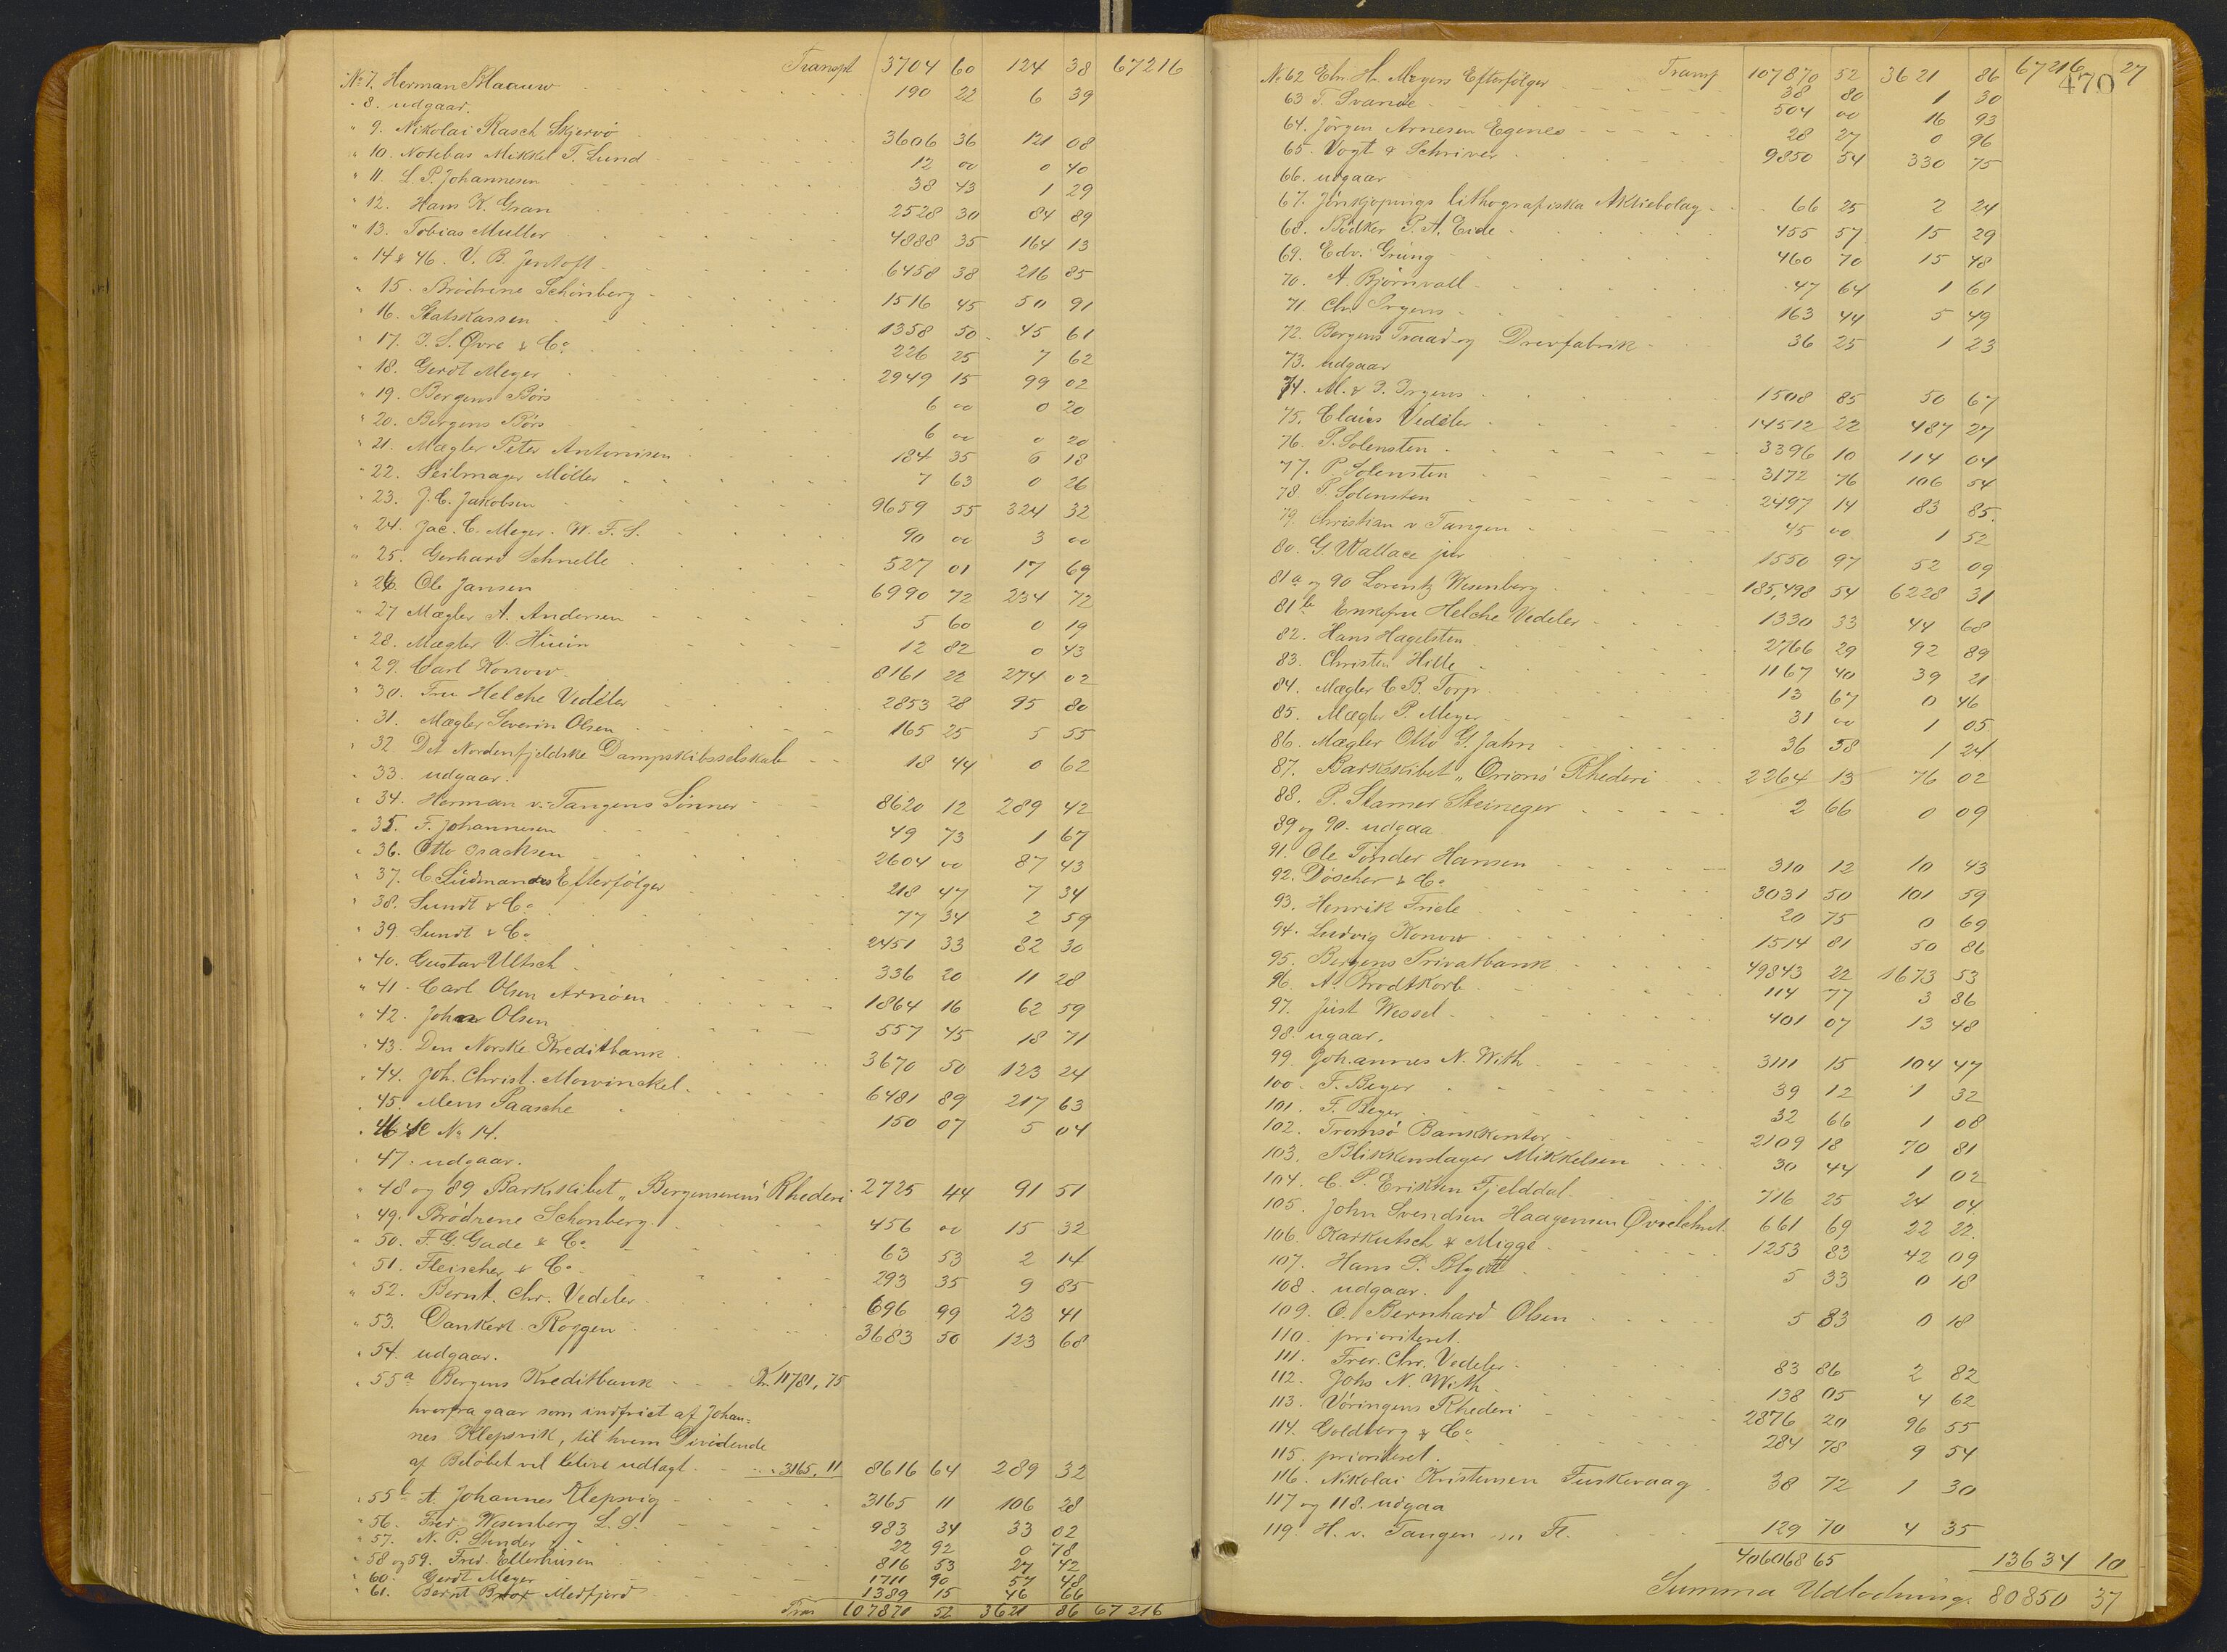 Transpt 3704 60 124 38 67216
No 7. Herman Blaauw 190 22 6 39
" 8. udgaar.
" 9. Nikolai Rasch Skjervö 3606 36 121 08
" 10. Notebas Mikkel T. Lund 12 00 0 40
" 11. L. P. Johannesen 38 43 1 29
" 12. Hans K. Gran 2528 30 84 89
" 13. Tobias Muller 4888 35 164 13
" 14 & 46. V. B. Jentoft 6458 38 216 85
" 15. Brödrene Schönberg 1516 45 50 91
" 16. Statskassen 1358 50 45 61
" 17. J. S. Øvre & Co 226 25 7 62
" 18. Gerdt Meyer 2949 15 99 02
" 19. Bergens Börs 6 00 0 20
" 20. Bergens Börs 6 00 0 20
" 21. Mægler Peter Antonisen 184 35 6 18
" 22. Seilmager Möller 7 63 0 26
" 23. J. C. Jakobsen 9659 55 324 32
" 24. Jac. C. Meyer. W. F. S. 90 00 3 00
" 25. Gerhard Schnelle 527 01 17 69
" 26. Ole Jansen 6990 72 234 72
" 27 Mægler A. Andersen 5 60 0 19
" 28. Mægler V. 12 82 0 43
" 29. Carl Konow. 8161 22 274 02
" 30. Fru Helche Vedeler 2853 28 95 80
" 31. Mægler Severin Olsen 165 25 5 55
" 32. Det Nordenfjeldske Dampskibsselskab 18 44 0 62
" 33. udgaar.
" 34. Herman v. Tangens Sönner 8620 12 289 42
" 35. F. Johannesen 49 73 1 67
" 36. Otto Isachsen 2604 00 87 43
" 37. C. Südmanns Efterfölger 218 47 7 34
" 38. Sundt & Co 77 34 2 59
" 39. Sundt & Co 2451 33 82 30
" 40. Gustav Ultsch 336 20 11 28
" 41. Carl Olsen Arnöen 1864 16 62 59
" 42. Johan Olsen 557 45 18 71
" 43. Den Norske Kreditbank 3670 50 123 24
" 44. Joh. Christ. Mowinckel 6481 89 217 63
" 45. Mens Paasche 150 07 5 04
" 46 se No 14.
" 47. udgaar.
" 48 og 89 Barkskibet „Bergenserens" Rhederi 2725 44 91 51
" 49. Brödrene Schonberg. 456 00 15 32
" 50. F. G. Gade & Co 63 53 2 14
" 51. Fleischer & Co 293 35 9 85
" 52. Bernt. Chr. Vedeler 696 99 23 41
" 53. Dankert Roggen 3683 50 123 68
" 54. udgaar.
" 55a Bergens Kreditbank Kr. 11781,75
hvorfra gaar som indfriet af Johan=
nes Klepsvik, til hvem Dividende
af Belöbet vil blive udlagt. 3165,11 8616 64 289 32
" 55b A. Johannes Klepsvig 3165 11 106 28
" 56. Fred. Wesenberg L. S. 983 34 33 02
" 57. N. P. Stender 22 92 0 78
" 58 og 59. Fred. Ellerhusen 816 53 27 42
" 60. Gerdt Meyer 1711 90 57 48
" 61. Bernt Brox Medfjord 1389 15 46 66
Tran 107870 52 3621 86 67 216
470
No 62 H. Meyers Efterfölger Transp 107870 52 3621 86 67216 27
38 80 1 30
63 T. Svanöe 504 00 16 93
64. Jörgen Arnesen Egenes 28 27 0 96
65. Vogt & Schriver 9850 54 330 75
66. udgaar
67. Jönkjöpings lithografiska Aktiebolag 66 25 2 24
68. Bödker P. A. Eide 455 57 15 29
69. Edv. Grüng 460 70 15 48
70. A. Björnvall 47 64 1 61
71. Chr. Irgens 163 44 5 49
72. Bergens Traad og Drevfabrik 36 25 1 23
73. udgaar
74. M. & J. Irgens 1508 85 50 67
75. Claus Vedeler 14512 22 487 27
76. P. Solensten 3396 10 114 04
77. P. Solensten 3172 76 106 54
78. P. Solensten 2497 14 83 85.
79. Christian v Tangen 45 00 1 52
80. G. Wallace jur 1550 97 52 09
81a og 90 Lorentz Wesenberg 185,498 54 6228 31
81b Enkefru Helche Vedeler 1330 33 44 68
82. Hans Hagelsten 2766 29 92 89
83. Christen Hille 1167 40 39 21
84. Mægler C. B. Torp 13 67 0 46
85. Mægler P. Meyer 31 00 1 05
86. Mægler Otto G. Jahn 36 58 1 24
87. Barkskibet „Orions" Rhederi 2264 13 76 02
88. P. Stamer Steineger 2 66 0 09
89 og 90. udgaa
91. Ole Tönder Hansen 310 12 10 43
92. Döscher & Co 3031 50 101 59
93. Henrik Friele 20 75 0 69
94. Ludvig Konow 1514 81 50 86
95. Bergens Privatbank 49843 22 1673 53
96. A. Brodtkorb 114 77 3 86
97. Just Wessel 401 07 13 48
98. ugaar.
99. Johannes N. With 3111 15 104 47
100. F. Beyer 39 12 1 32
101. F. Beyer 32 66 1 08
102. Tromsö Bankkontor 2109 18 70 81
103. Blikkenslager Mikkelsen 30 44 1 02
104. C. P. Eriksen Fjelddal 716 25 24 04
105. John Svendsen Haagensen 661 69 22 22.
106. Karkutsch & Migge 1253 83 42 09
107. Hans D. Blydt 5 33 0 18
108. udgaar.
109. O. Bernhard Olsen 5 83 0 18
110. prioriteret.
111. Fredr. Chr. Vedeler 83 86 2 82
112. Johs N. With 138 05 4 62
113. Vöringens Rhederi 2876 20 96 55
114. Goldberg & Co 284 78 9 54
115. prioriteret.
116. Nikolai Kristensen Fuskevaag 38 72 1 30
117 og 118. udgaa
119. H. v. Tangen 129 70 4 35
406068 65 13634 10
Summa Udlodning. 80850 37